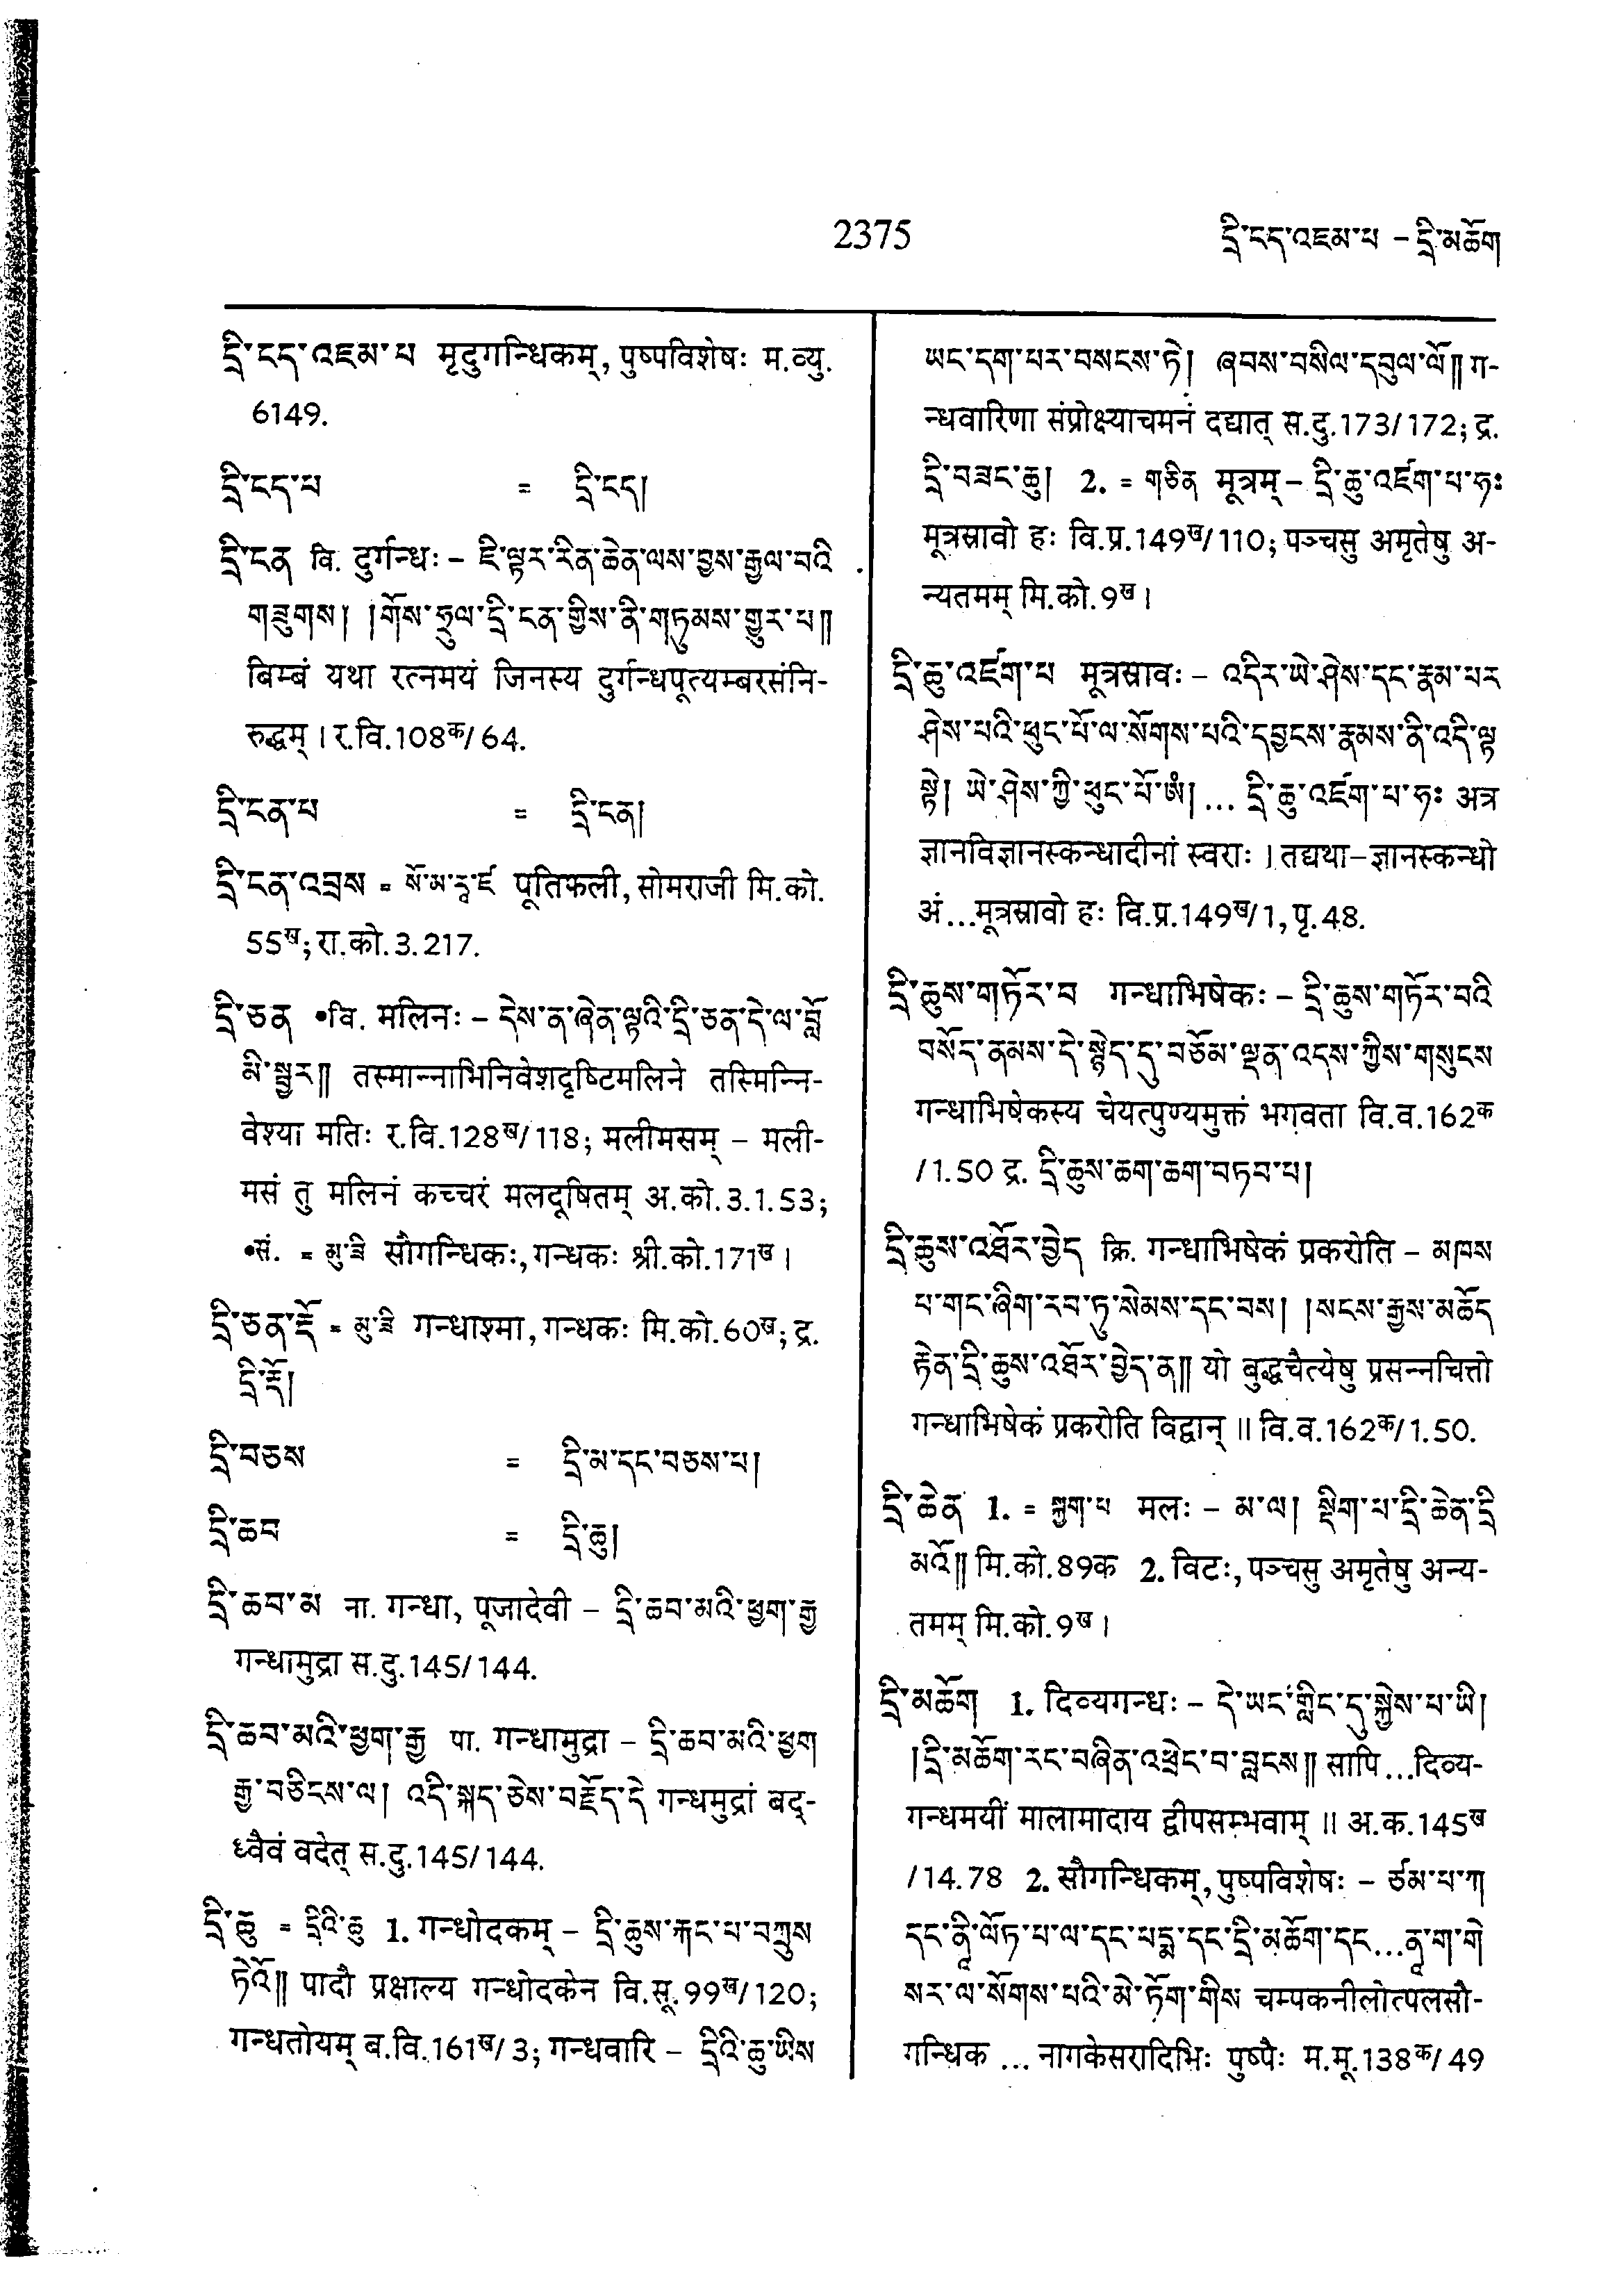 2375
དྲི་ངད་འཇམ་པ – དྲི་མཆོག
དྲི་ངད་འཇམ་པ मृदुगन्धिकम्, पुष्पविशेषः म.व्यु.
6149.
དྲི་ངད་པ = དྲི་ངད།
དྲི་ངན वि. दुर्गन्धः – ཇི་ལྟར་རིན་ཆེན་ལས་བྱས་རྒྱལ་བའི
གཟུགས། །གོས་ཧྲུལ་དྲི་ངན་གྱིས་ནི་གཏུམས་གྱུར་པ།།
बिम्बं यथा रत्नमयं जिनस्य दुर्गन्धपूत्यम्बरसंनि-
रुद्धम् । र.वि.108क/64.
དྲི་ངན་པ = དྲི་ངན།
དྲི་ངན་འབྲས = སོ་མ་རཱ་ཛ पूतिफली, सोमराजी मि.को.
55ख; रा.को.3.217.
དྲི་ཅན •वि. मलिनः – དེས་ན་ཞེན་ལྟའི་དྲི་ཅན་དེ་ལ་བློ
མི་སྦྱར།། तस्मान्नाभिनिवेशदृष्टिमलिने तस्मिन्नि-
वेश्या मतिः र.वि.128ख/118; मलीमसम् – मली-
मसं तु मलिनं कच्चरं मलदूषितम् अ.को.3.1.53;
•सं. = མུ་ཟི सौगन्धिकः, गन्धकः श्री.को.171ख ।
དྲི་ཅན་རྡོ = མུ་ཟི गन्धाश्मा, गन्धकः मि.को.60ख; द्र.
དྲི་རྡོ།
དྲི་བཅས = དྲི་མ་དང་བཅས་པ།
དྲི་ཆབ = དྲི་ཆུ།
དྲི་ཆབ་མ ना. गन्धा, पूजादेवी – དྲི་ཆབ་མའི་ཕྱག་རྒྱ
गन्धामुद्रा स.दु.145/144.
དྲི་ཆབ་མའི་ཕྱག་རྒྱ पा. गन्धामुद्रा – དྲི་ཆབ་མའི་ཕྱག
རྒྱ་བཅིངས་ལ། འདི་སྐད་ཅེས་བརྗོད་དེ गन्धमुद्रां बद्-
ध्वैवं वदेत् स.दु.145/144.
དྲི་ཆུ = དྲིའི་ཆུ 1. गन्धोदकम् – དྲི་ཆུས་རྐང་པ་བཀྲུས
ཏེའོ།། पादौ प्रक्षाल्य गन्धोदकेन वि.सू.99ख/120;
गन्धतोयम् ब.वि.161ख/3; गन्धवारि – དྲིའི་ཆུ་ཡིས
ཡང་དག་པར་བསངས་ཏེ། ཞབས་བསིལ་དབུལ་ལོ།། ग-
न्धवारिणा संप्रोक्ष्याचमनं दद्यात् स.दु.173/172; द्र.
དྲི་བཟང་ཆུ། 2. = གཅིན मूत्रम् – དྲི་ཆུ་འཛག་པ་ཧཿ
मूत्रस्रावो हः वि.प्र.149ख/110; पञ्चसु अमृतेषु अ-
न्यतमम् मि.को.9ख ।
དྲི་ཆུ་འཛག་པ मूत्रस्रावः – འདིར་ཡེ་ཤེས་དང་རྣམ་པར
ཤེས་པའི་ཕུང་པོ་ལ་སོགས་པའི་དབྱངས་རྣམས་ནི་འདི་ལྟ
སྟེ། ཡེ་ཤེས་ཀྱི་ཕུང་པོ་ཨཾ།... དྲི་ཆུ་འཛག་པ་ཧཿ अत्र
ज्ञानविज्ञानस्कन्धादीनां स्वराः । तद्यथा–ज्ञानस्कन्धो
अं...मूत्रस्रावो हः वि.प्र.149ख/1, पृ.48.
དྲི་ཆུས་གཏོར་བ गन्धाभिषेकः – དྲི་ཆུས་གཏོར་བའི
བསོད་ནམས་དེ་སྙེད་དུ་བཅོམ་ལྡན་འདས་ཀྱིས་གསུངས
गन्धाभिषेकस्य चेयत्पुण्यमुक्तं भगवता वि.व.162क
/1.50 द्र. དྲི་ཆུས་ཆག་ཆག་བཏབ་པ།
དྲི་ཆུས་འཐོར་བྱེད क्रि. गन्धाभिषेकं प्रकरोति – མཁས
པ་གང་ཞིག་རབ་ཏུ་སེམས་དང་བས། །སངས་རྒྱས་མཆོད
རྟེན་དྲི་ཆུས་འཐོར་བྱེད་ན།། यो बुद्धचैत्येषु प्रसन्नचित्तो
गन्धाभिषेकं प्रकरोति विद्वान् ॥ वि.व.162क/1.50.
དྲི་ཆེན 1. = སྐྱག་པ मलः – མ་ལ། སྡིག་པ་དྲི་ཆེན་དྲི
མའོ།། मि.को.89क 2. विटः, पञ्चसु अमृतेषु अन्य-
तमम् मि.को.9ख ।
དྲི་མཆོག 1. दिव्यगन्धः – དེ་ཡང་གླིང་དུ་སྐྱེས་པ་ཡི།
།དྲི་མཆོག་རང་བཞིན་འཕྲེང་བ་བླངས།། सापि...दिव्य-
गन्धमयीं मालामादाय द्वीपसम्भवाम् ॥ अ.क.145ख
/14.78 2. सौगन्धिकम्, पुष्पविशेषः – ཙམ་པ་ཀ
དང་ནཱི་ལོཏ་པ་ལ་དང་པདྨ་དང་དྲི་མཆོག་དང...ནཱ་ག་གེ
སར་ལ་སོགས་པའི་མེ་ཏོག་གིས चम्पकनीलोत्पलसौ-
गन्धिक ... नागकेसरादिभिः पुष्पैः म.मू.138क/49